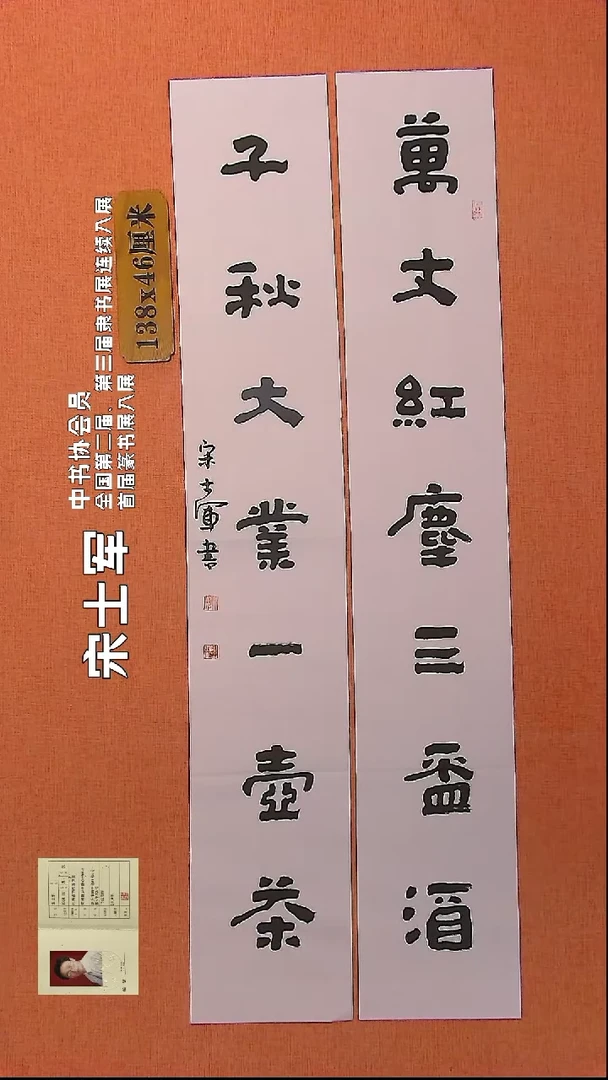 萬丈紅塵三盃酒
千秋大業一壺茶
宋士軍書
138x46厘米
中书协会员
全国第二届、第三届隶书展连续入展
首届篆书展入展
宋士军